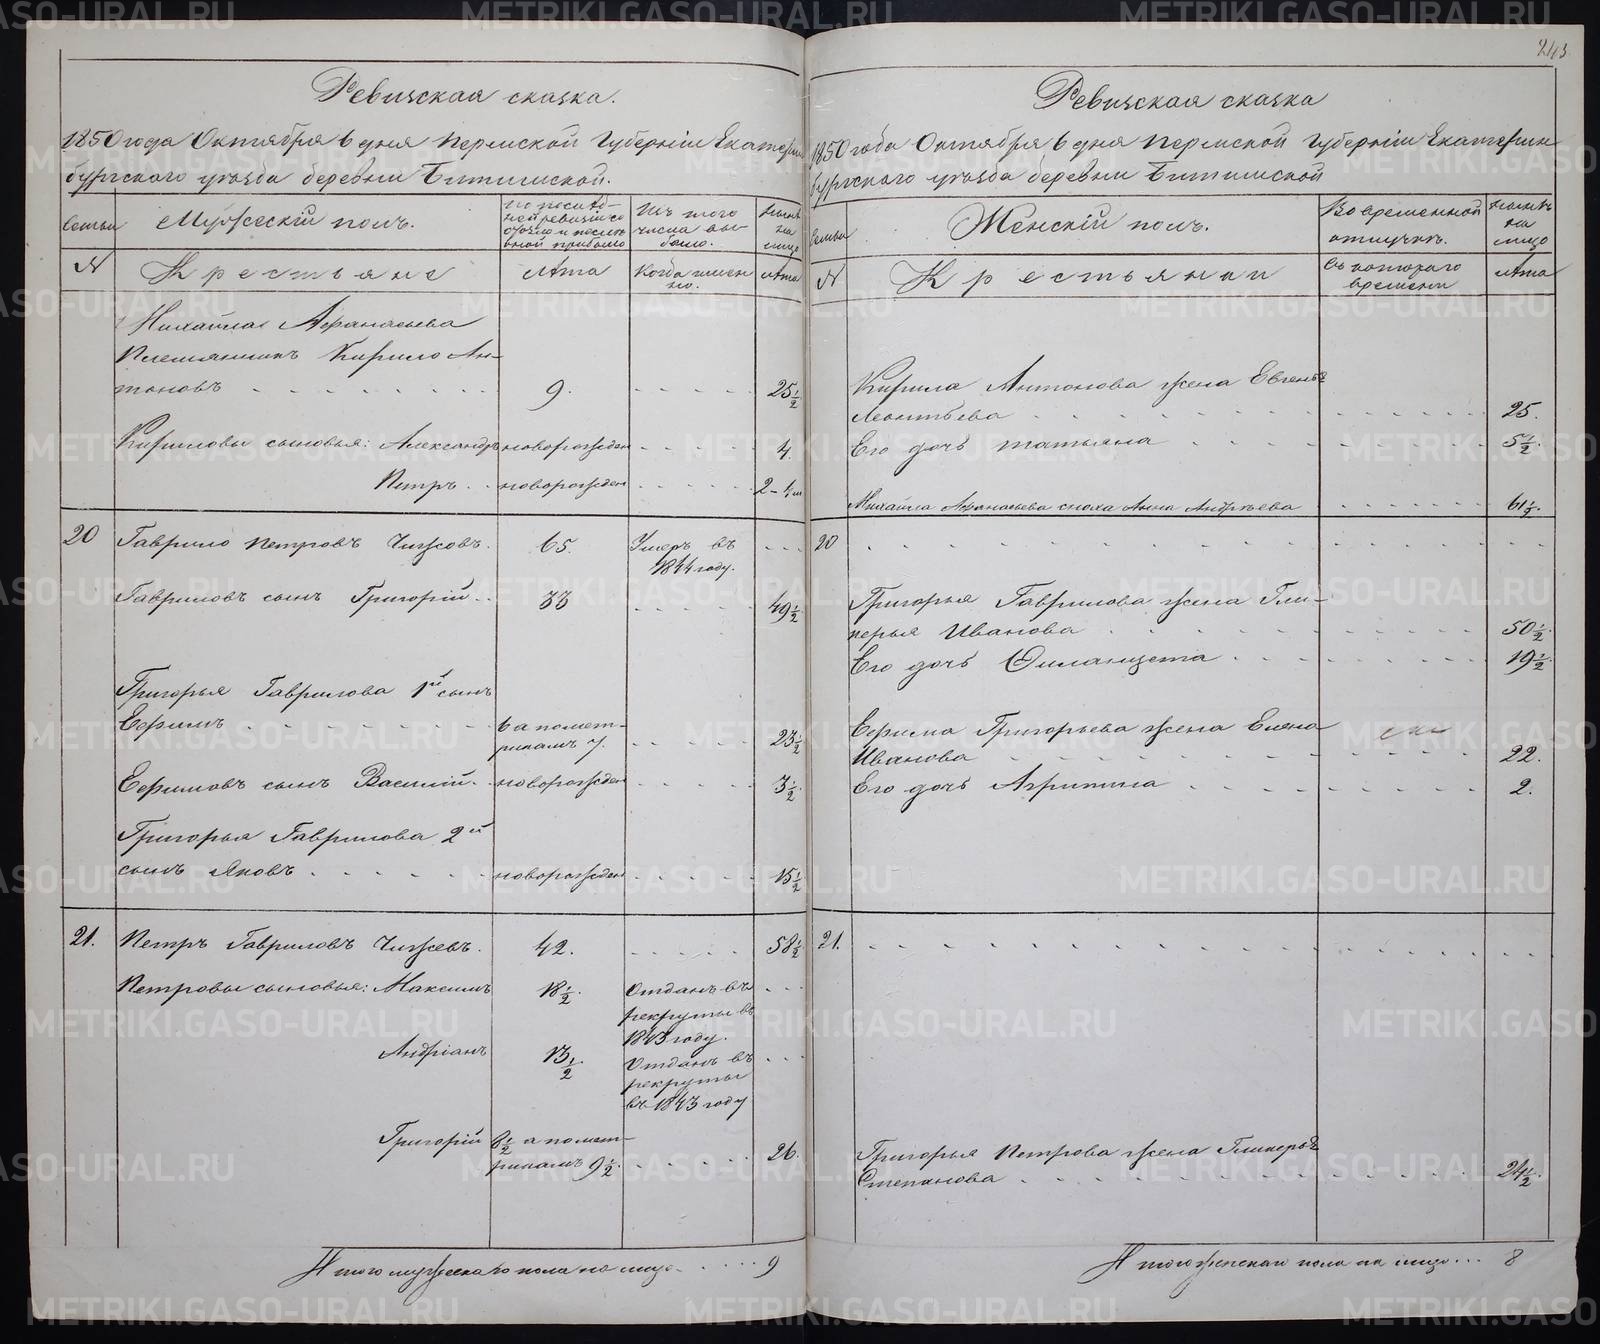 Ревизская сказка.
1850 года Октября 6 дня Пермской Губерніи Екатерин
бургскаго уѣзда деревни
Семьи
Мужескій полъ.
По послѣд-
ней ревизіи со
стояло и послѣ
оной прибыло
Изъ того
числа вы-
было.
Нынѣ
на
лицо
N
Крестьяне
Лѣта
Когда имен
но.
Лѣта
Михайла Афанасьева
Племянникъ Кирило Ан-
тоновъ 9. 25½
Кириловы сыновья: Александръ новорожден 4.
Петръ новорожден 2
20 Гаврило Петровъ Чижовъ. 65. Умеръ въ
1844 году.
Гавриловъ сынъ Григорій 33 49½
Григорья Гаврилова 1й сынъ
Ефимъ 6 а по мет-
рикамъ 7. 23½
Ефимовъ сынъ Василій новорожден 3½
Григорья Гаврилова 2й
сынъ Яковъ новорожден 15½
21. Петръ Гавриловъ Чижевъ. 42. 58½
Петровы сыновья: Максимъ 18½. Отданъ въ
рекруты въ
1843 году.
Андріанъ 13½ Отданъ въ
рекруты
въ 1843 году
Григорій 8½ а по мет-
рикамъ 9½. 26.
Итого мужескаго пола на лицо 9
243
Ревизская сказка
1850 года Октября 6 дня Пермской Губерніи Екатерин
бургскаго уѣзда деревни
Семьи
Женскій полъ.
Во временной
отлучкѣ.
Нынѣ
на
лицо
N
Крестьянки
Съ котораго
времени
Лѣта
Кирила Антонова жена Евгенья
Леонтьева 25.
Его дочь Татьяна 5½.
Михайла Афанасьева сноха Анна Андреева 61½.
20
Григорья Гаврилова жена Гли-
керья Иванова 50½.
Его дочь 19½.
Ефима Григорьева жена Елена
Иванова 22.
Его дочь Агрипина 2.
21.
Григорья Петрова жена Гликерья
Степанова 24½.
Итого женскаго пола на лицо 8
METRIKI.GASO-URAL.RU